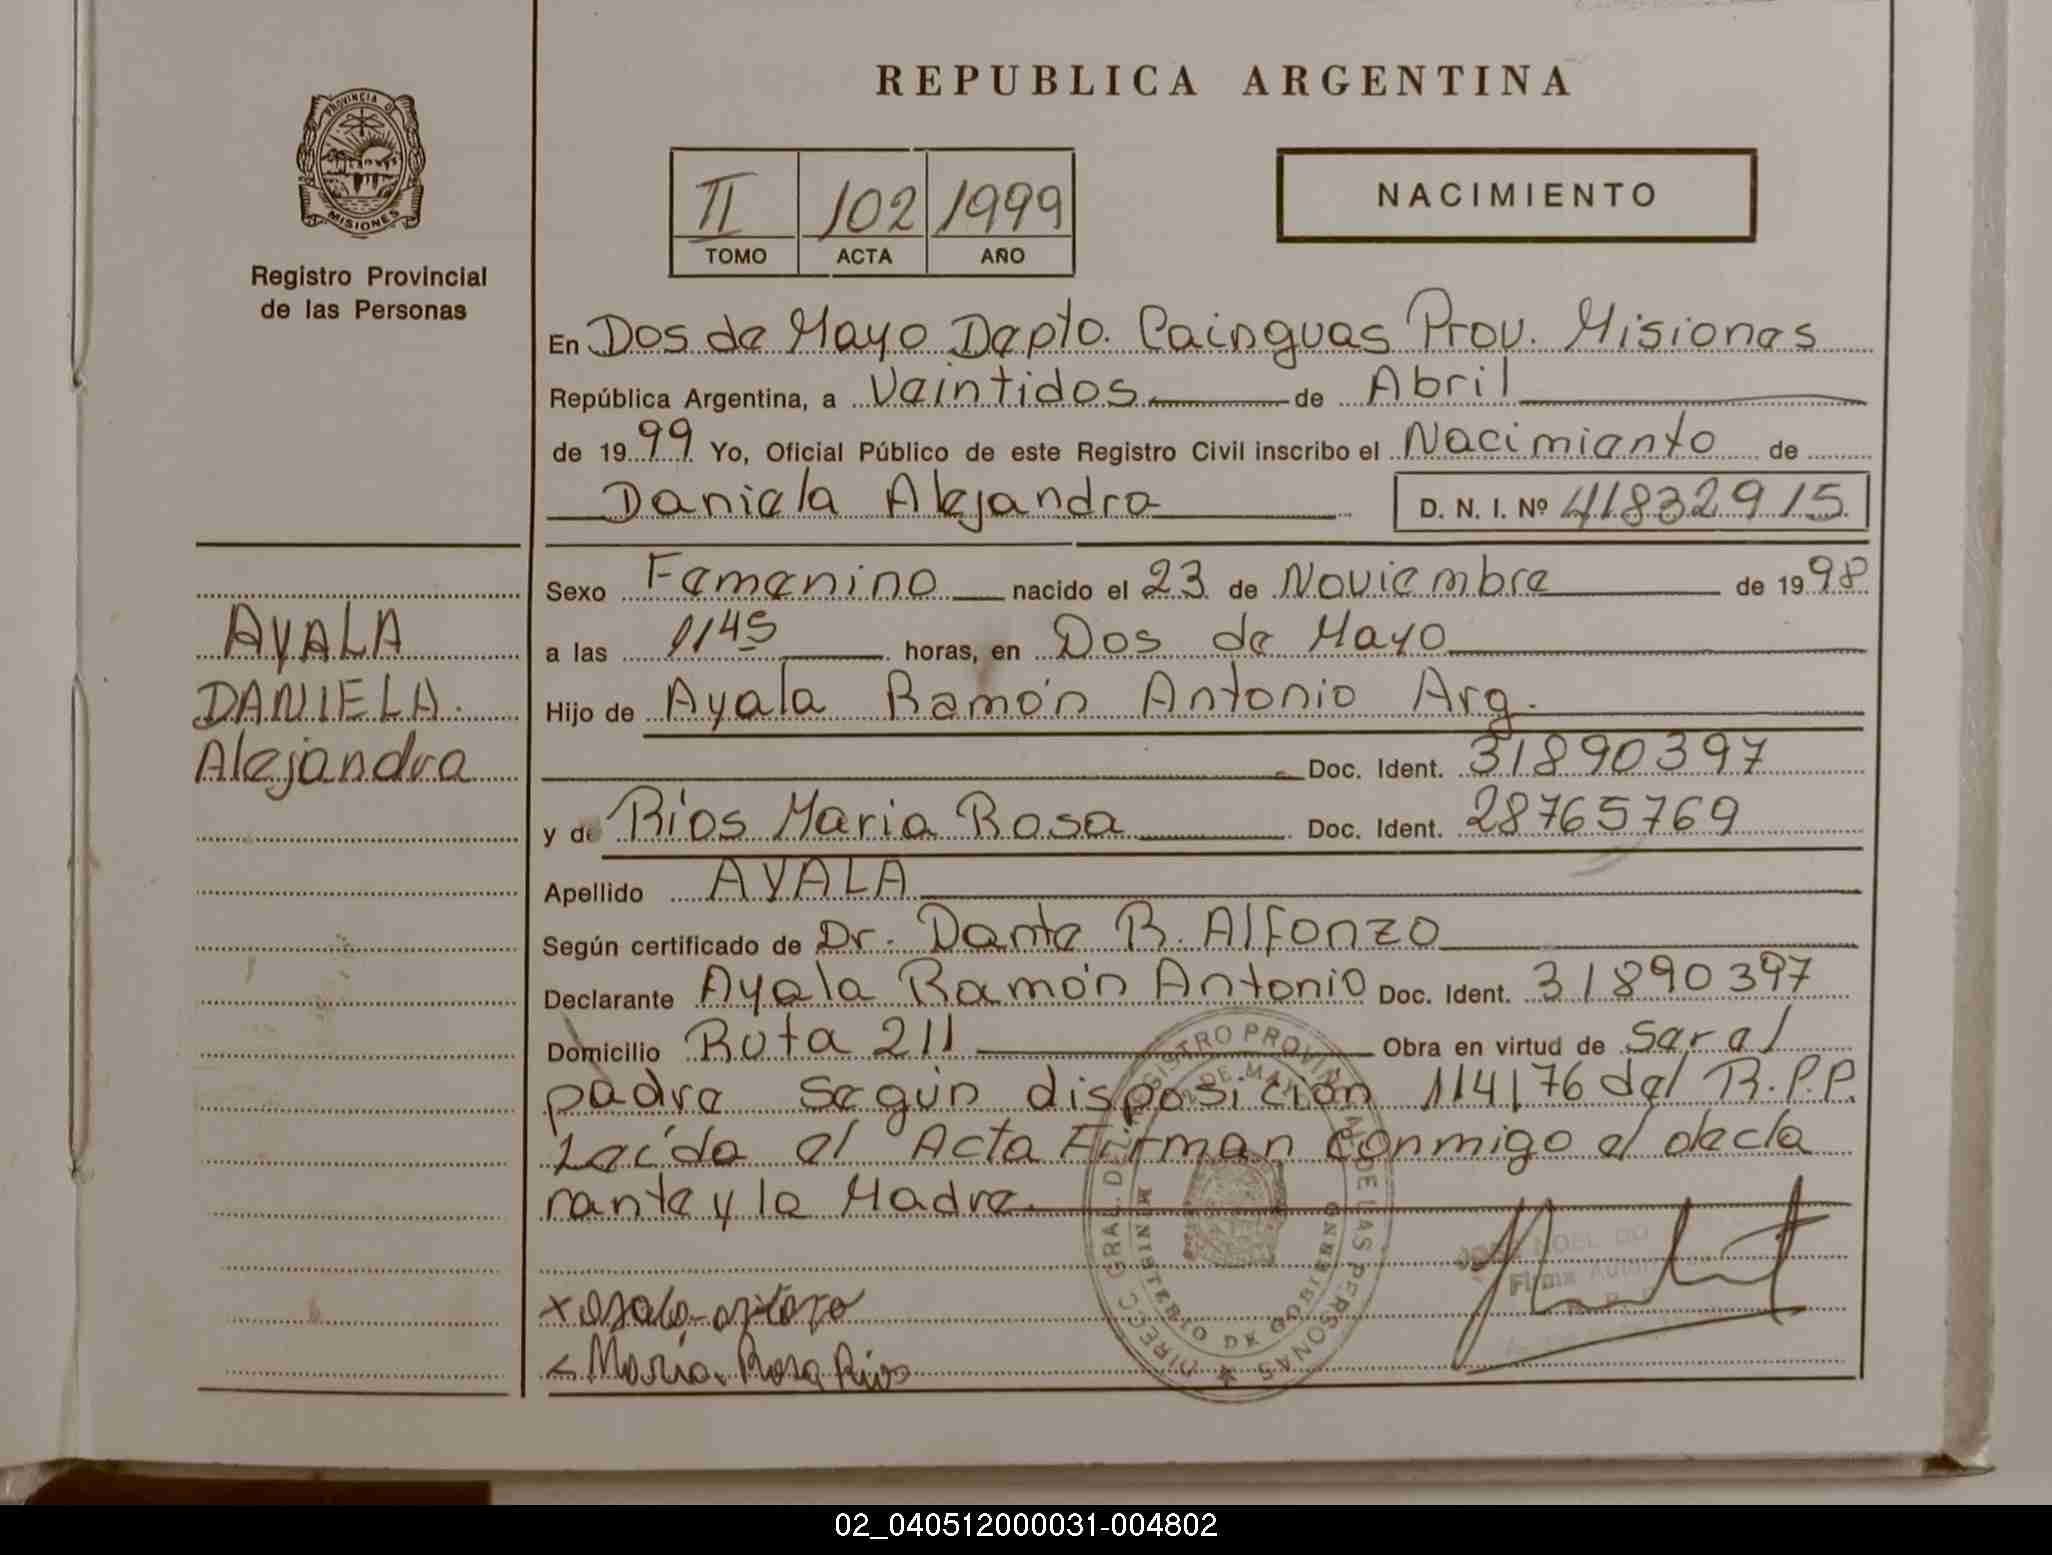 REPUBLICA ARGENTINA
PROVINCIA DE MISIONES
Registro Provincial
de las Personas
II 102 1999
TOMO ACTA AÑO
NACIMIENTO
En Dos de Mayo Depto. Cainguas Prov. Misiones
República Argentina, a Veintidos de Abril
de 1999 Yo, Oficial Público de este Registro Civil inscribo el Nacimiento de
Daniela Alejandra D. N. I. Nº 41832915
Sexo Femenino nacido el 23 de Noviembre de 1998
a las 1145 horas, en Dos de Mayo
Hijo de Ayala Ramón Antonio Arg.
Doc. Ident. 31890397
y de Ríos Maria Rosa Doc. Ident. 28765769
Apellido AYALA
Según certificado de Dr. Dante R. Alfonzo
Declarante Ayala Ramón Antonio Doc. Ident. 31890397
Domicilio Ruta 211 Obra en virtud de Ser el
padre según disposición 114/76 del R.P.P.
Leída el Acta Firman conmigo el decla
rante y la Madre.
AYALA
DANIELA.
Alejandra
Maria Rosa Rios
DIRECC. GRAL. DEL REGISTRO PROVINCIAL DE LAS PERSONAS
2 DE MAYO
MINISTERIO DE GOBIERNO
NOEL DO
Firma
02_040512000031-004802